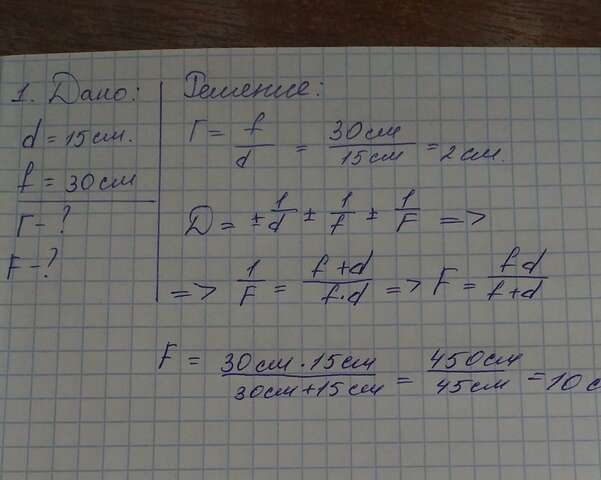 1. Дано:
d = 15см.
f = 30см
Г - ?
F - ?
Решение:
Г = f/d = 30см/15см = 2см.
D = ± 1/d ± 1/f ± 1/F =>
=> 1/F = f+d/f·d => F = fd/f+d
F = 30см·15см/30см+15см = 450см/45см = 10с